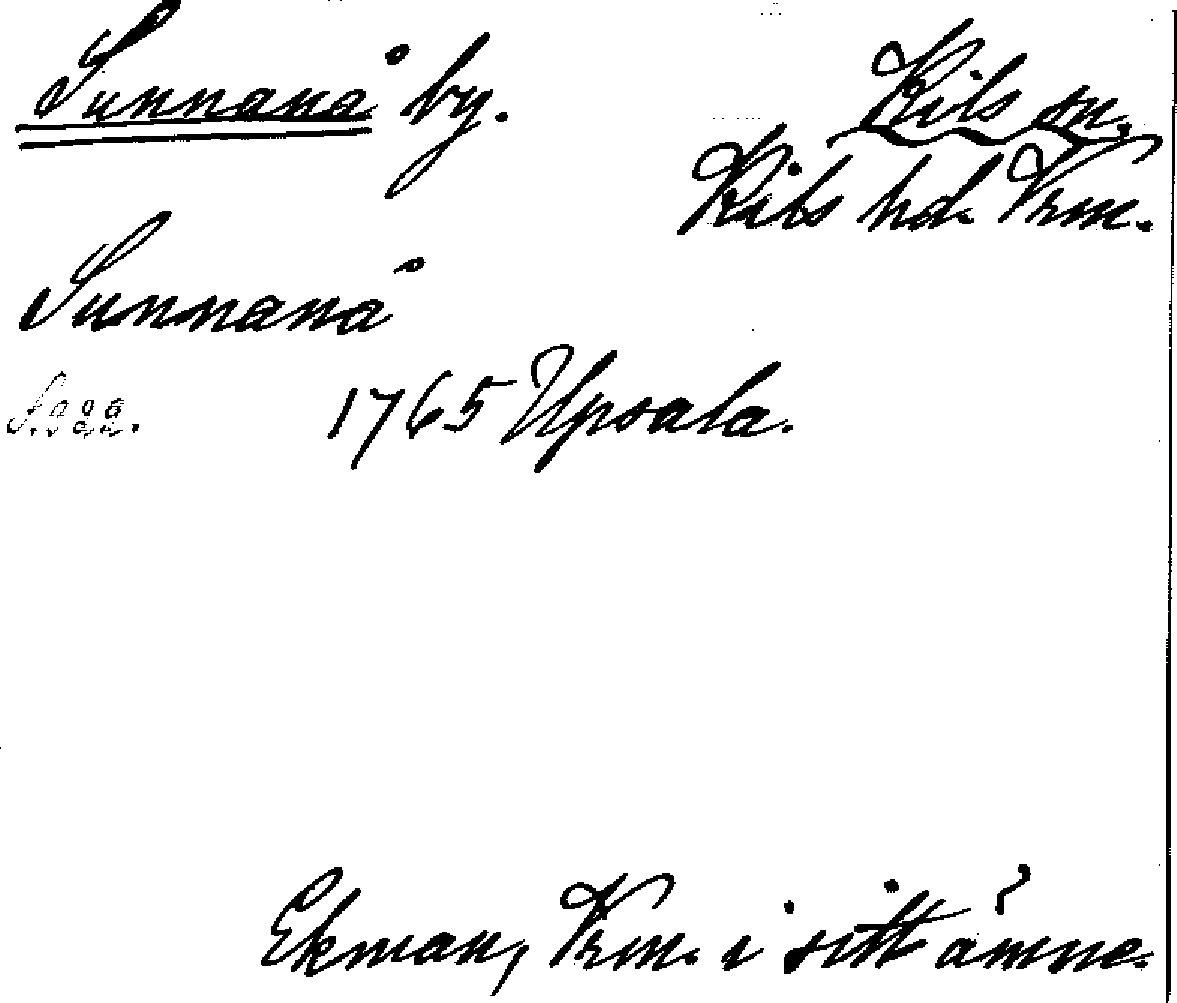 Sunnanå by. Kils sn.
Kils hd. Vrm.
Sunnanå
S. 922. 1765 Upsala.
Ekman, Vrm. i sitt ämne.